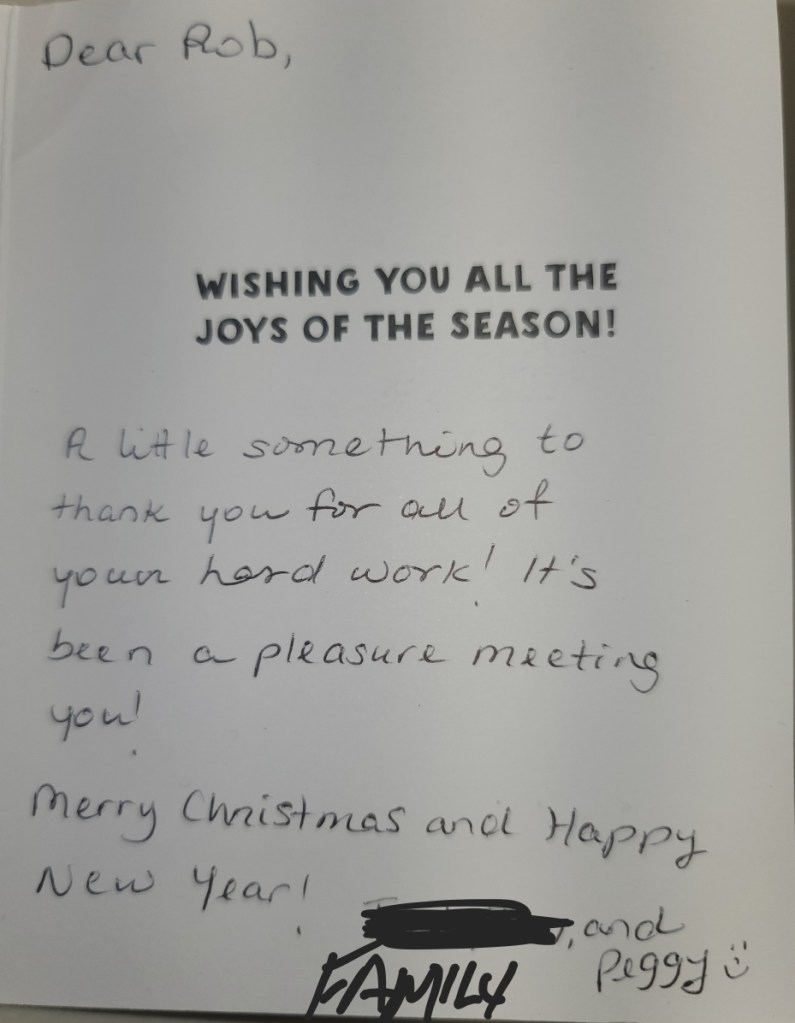 Dear Rob,
WISHING YOU ALL THE
JOYS OF THE SEASON!
A little something to
thank you for all of
your hard work! It's
been a pleasure meeting
you!
Merry Christmas and Happy
New Year!
, and
FAMILY
Peggy :)